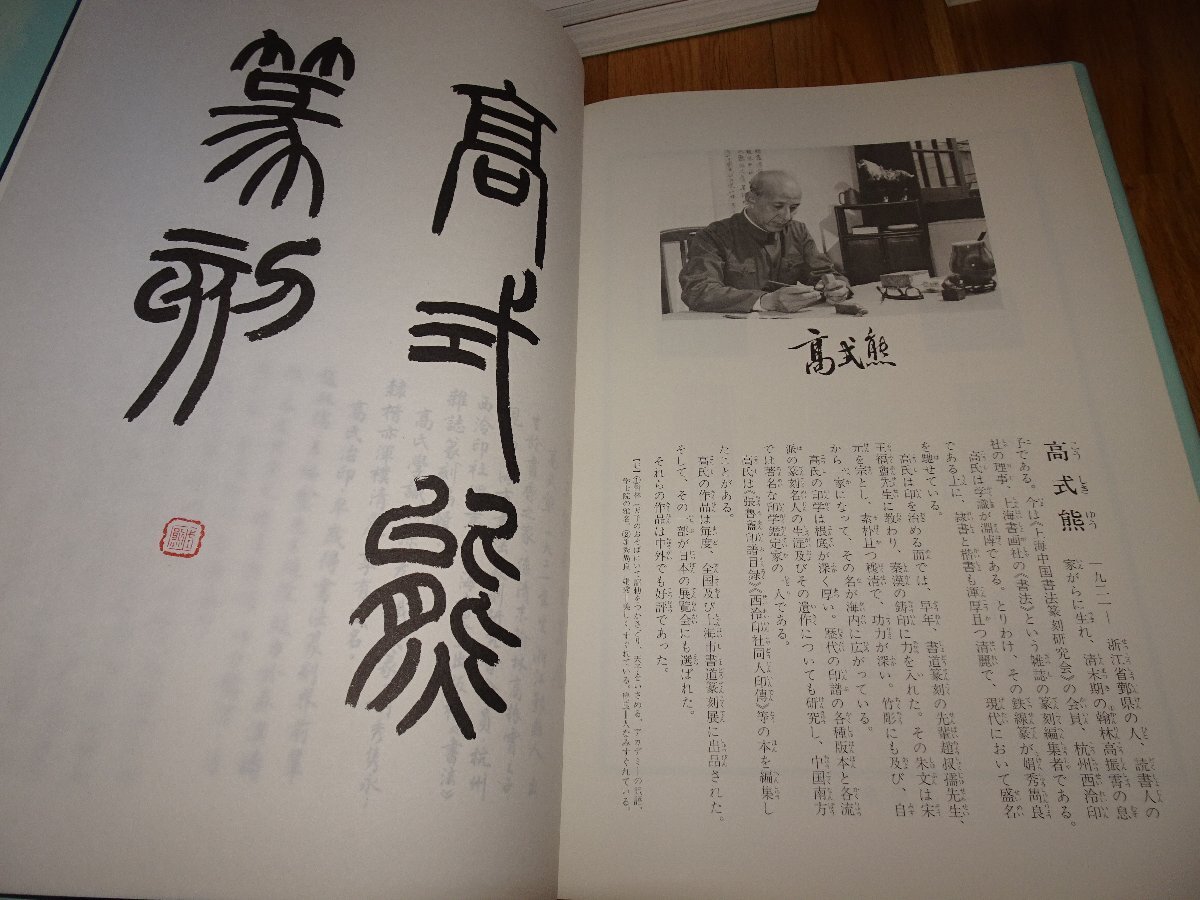 高式熊
高式熊
こう しき ゆう
一九二一―
浙江省鄞県の人、読書人の
家がらに生れ、清末期の翰林高振霄の息
子である。今は《上海中国書法篆刻研究会》の会員、杭州西泠印
社の理事、上海書画社の《書法》という雑誌の篆刻編集者である。
高氏は学識が淵博である。とりわけ、その鉄線篆が娟秀雋良
である上に、隷書と楷書も渾厚且つ清麗で、現代において盛名
を馳せている。
高氏は印を治める面では、早年、書道篆刻の先輩趙叔孺先生、
王福盦先生に教わり、秦漢の鋳印に力を入れた。その朱文は宋
元を宗とし、素朴且つ清で、功力が深い。竹彫にも及び、自
から一家になって、その名が海内に広がっている。
高氏の印学は根底が深く厚い。歴代の印譜の各種版本と各流
派の篆刻名人の生涯及びその遺作についても研究し、中国南方
では著名な印学鑑定家の一人である。
高氏は《張魯盦印譜目録》《西泠印社同人印傳》等の本を編集し
たことがある。
高氏の作品は毎度、全国及び上海市書道篆刻展に出品された。
そして、その一部が日本の展覧会にも選ばれた。
それらの作品は中外でも好評であった。
高式熊
篆刻